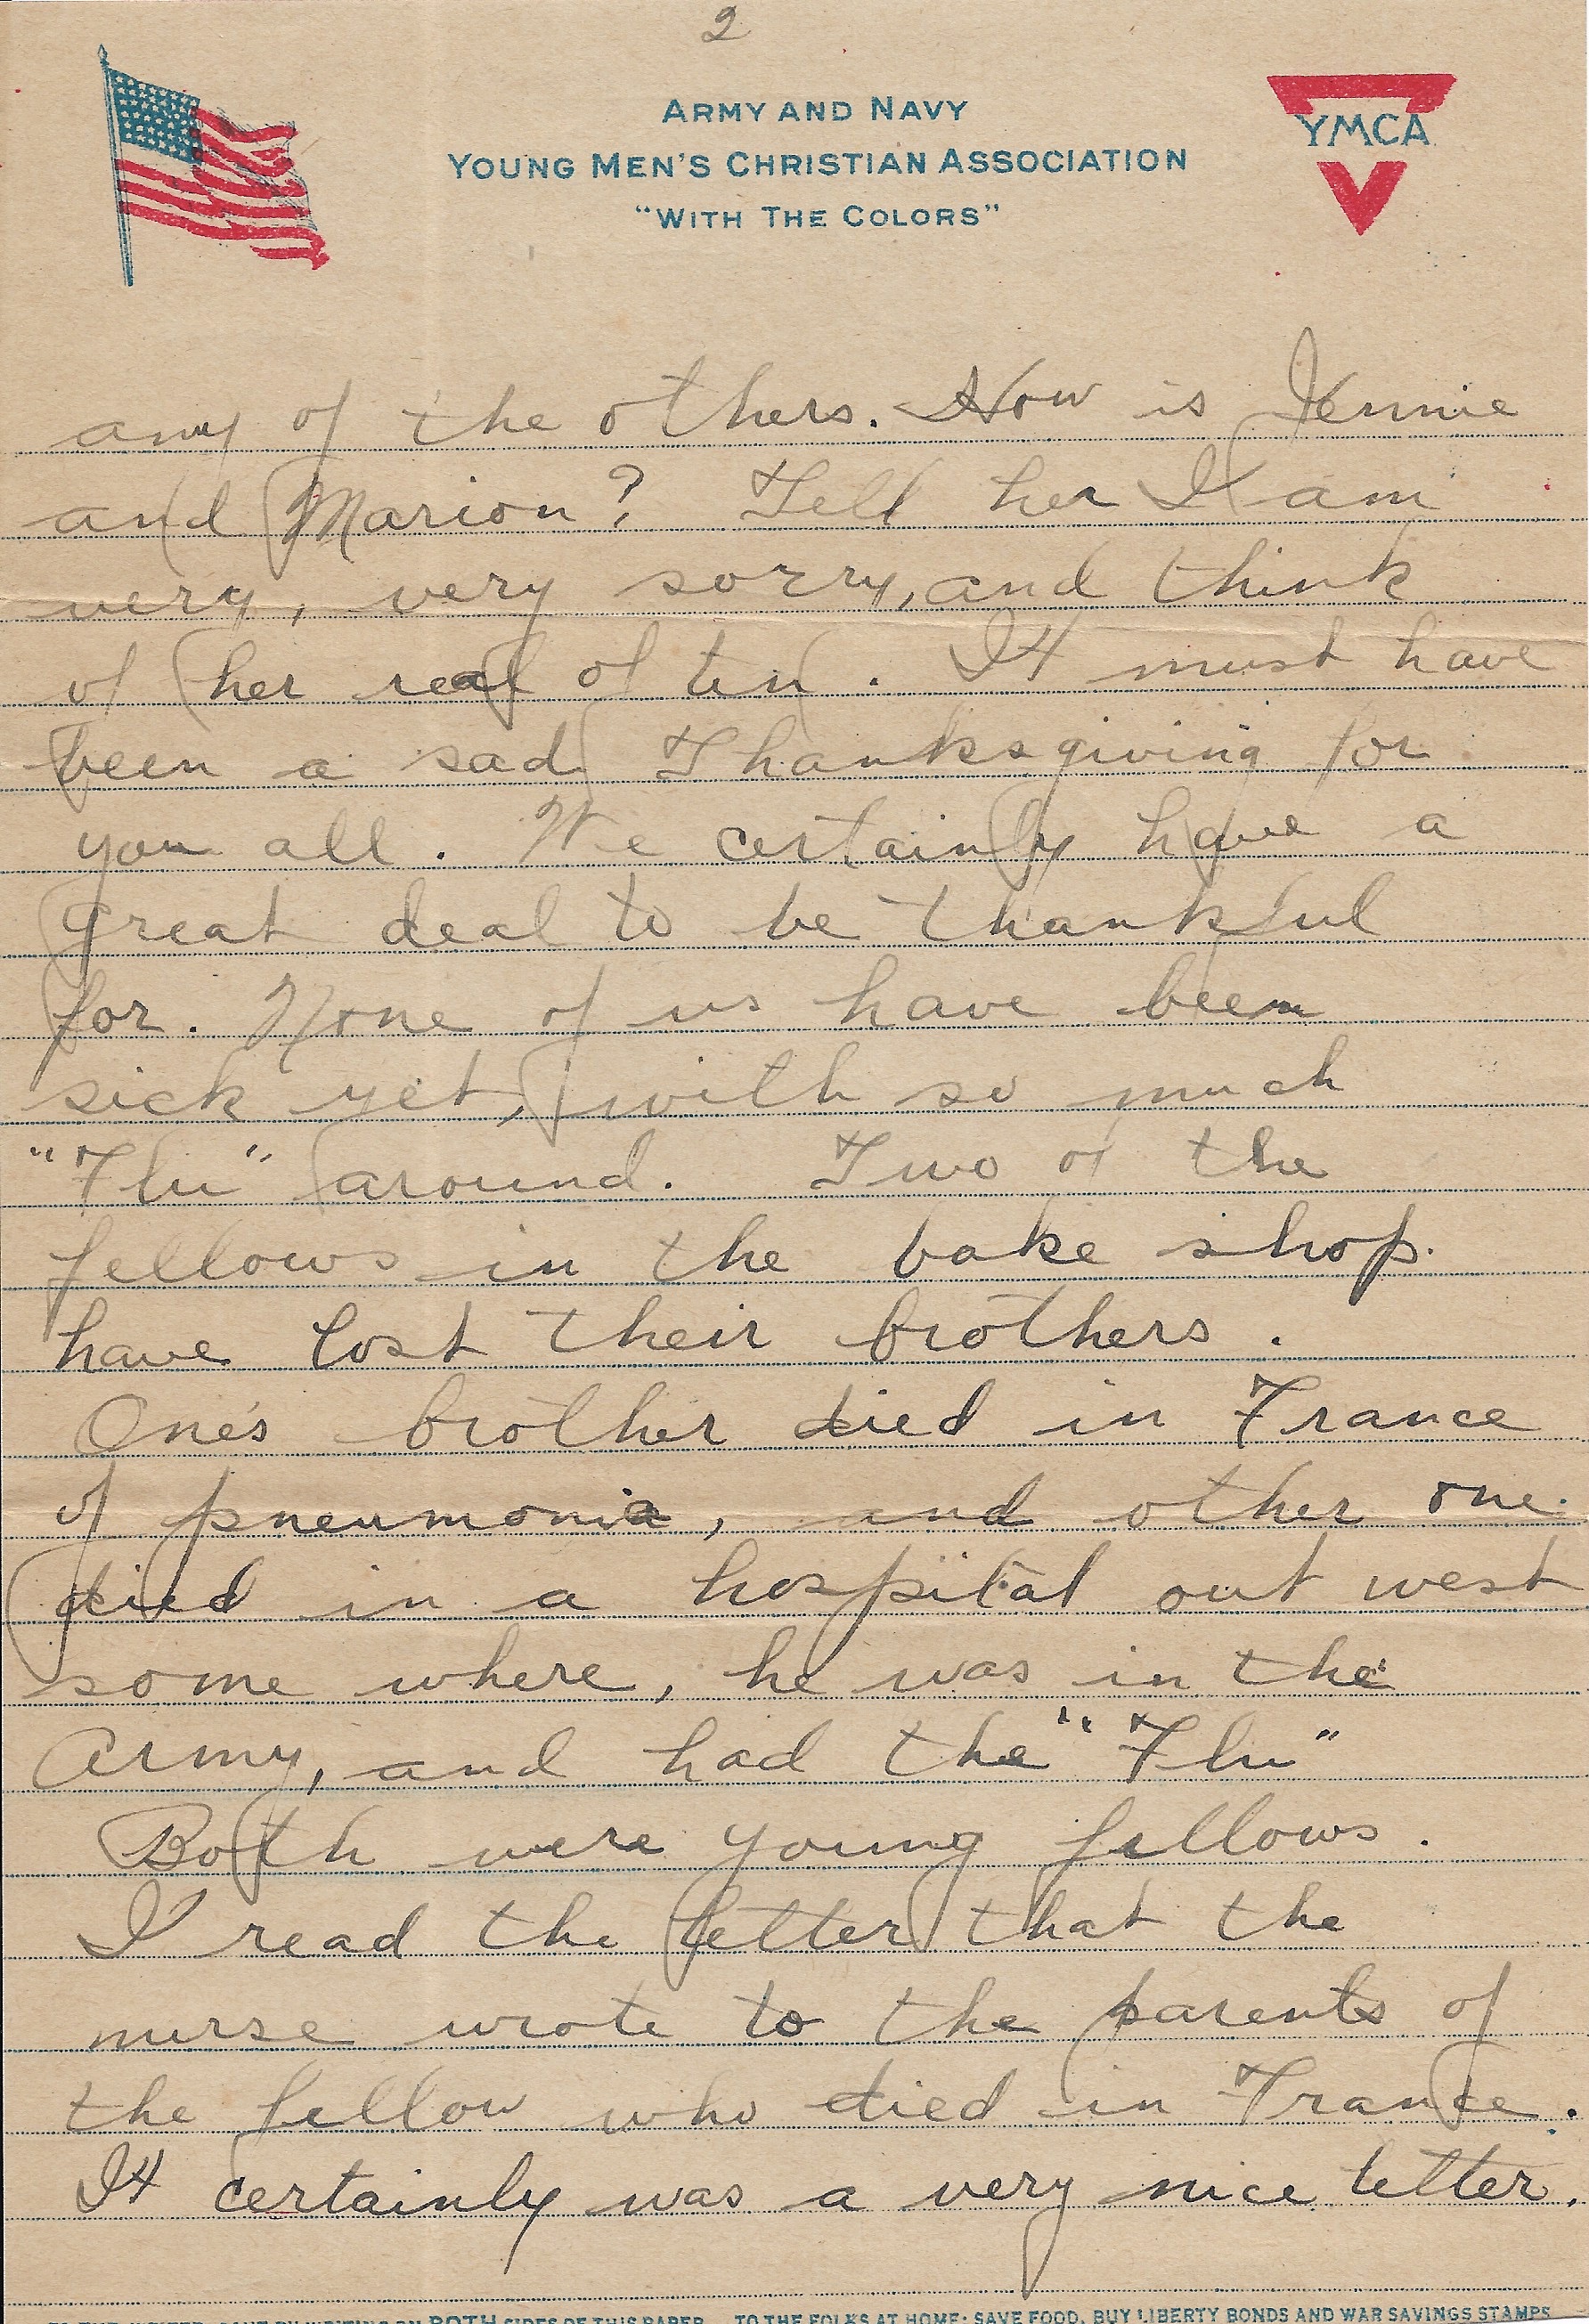 2
ARMY AND NAVY
YOUNG MEN'S CHRISTIAN ASSOCIATION
"WITH THE COLORS"
YMCA
any of the others. How is Jennie
and Marion? Tell her I am
very, very sorry, and think
of her real often. It must have
been a sad Thanksgiving for
you all. We certainly have a
great deal to be thankful
for. None of us have been
sick yet, with so much
"Flu" around. Two of the
fellows in the bake shop.
have lost their brothers.
One's brother died in France
of pneumonia, and other one.
died in a hospital out west
some where, he was in the
army, and had the "Flu"
Both were young fellows.
I read the letter that the
nurse wrote to the parents of
the fellow who died in France.
It certainly was a very nice letter.
TO THE WRITER: SAVE BY WRITING ON BOTH SIDES OF THIS PAPER. TO THE FOLKS AT HOME: SAVE FOOD, BUY LIBERTY BONDS AND WAR SAVINGS STAMPS